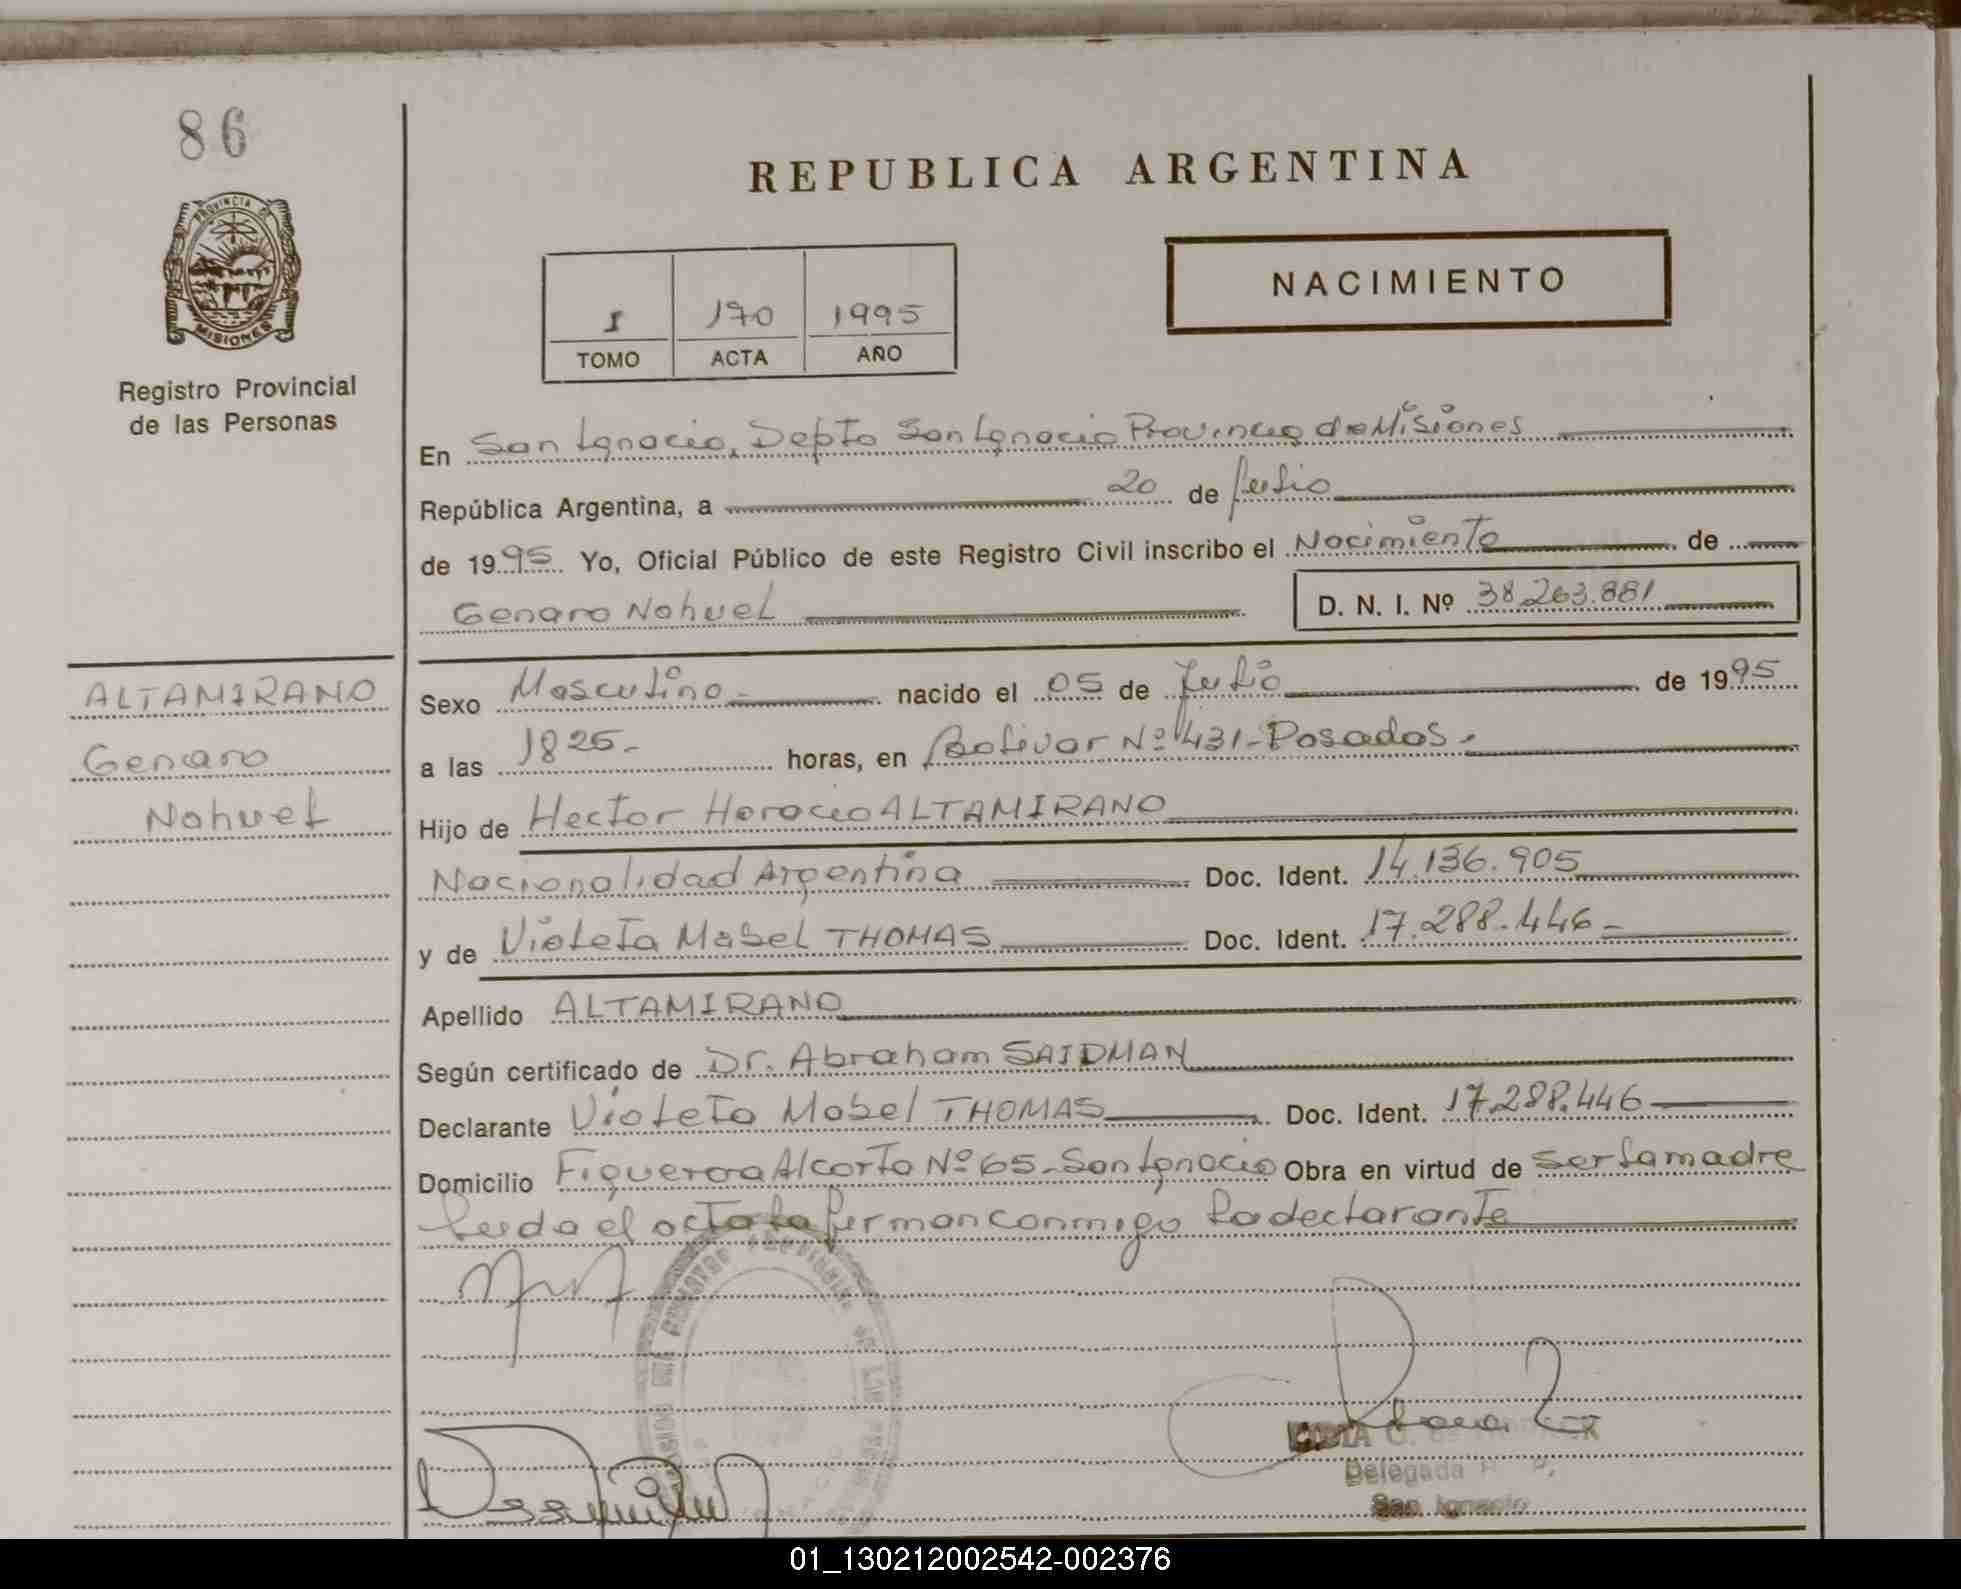 86
REPUBLICA ARGENTINA
PROVINCIA DE
MISIONES
NACIMIENTO
I 170 1995
TOMO ACTA AÑO
Registro Provincial
de las Personas
En San Ignacio, Depto San Ignacio Provincia de Misiones
República Argentina, a 20 de Julio
de 1995 Yo, Oficial Público de este Registro Civil inscribo el Nacimiento de
Genaro Nahuel D. N. I. Nº 38.263.881
ALTAMIRANO
Genaro
Nahuel
Sexo Masculino nacido el 05 de Julio de 1995
a las 1825 horas, en Bolivar Nº 431 - Posadas.
Hijo de Hector Horacio ALTAMIRANO
Nacionalidad Argentina Doc. Ident. 14.136.905
y de Violeta Mabel THOMAS Doc. Ident. 17.288.446
Apellido ALTAMIRANO
Según certificado de Dr. Abraham SAIDMAN
Declarante Violeta Mabel THOMAS Doc. Ident. 17.288.446
Domicilio Figueroa Alcorta Nº 65 - San Ignacio Obra en virtud de ser la madre
Leida el acta la firman conmigo la declarante
Delegada
San Ignacio
01_130212002542-002376